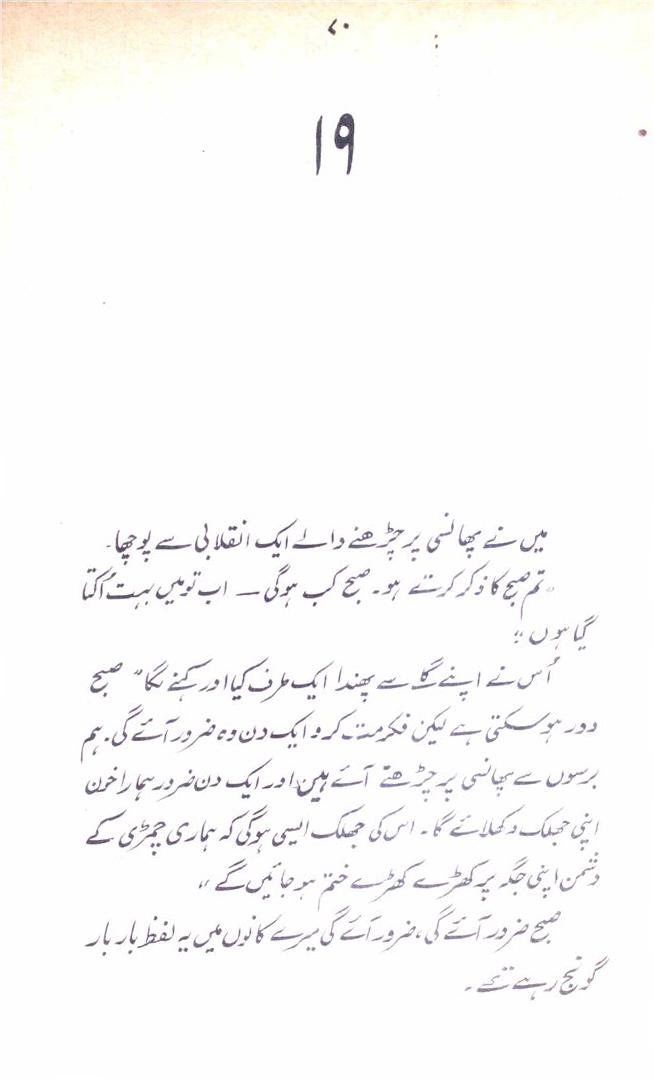 ۷۰
۱۹
میں نے پھانسی پر چڑھنے والے ایک انقلابی سے پوچھا۔
"تم صبح کا ذکر کرتے ہو۔ صبح کب ہوگی — اب تو میں بہت اُکتا
گیا ہوں"
اُس نے اپنے گلے سے پھندا ایک طرف کیا اور کہنے لگا "صبح
دور ہوسکتی ہے لیکن فکر مت کرو ایک دن وہ ضرور آئے گی۔ ہم
برسوں سے پھانسی پر چڑھتے آئے ہیں اور ایک دن ضرور ہمارا خون
اپنی جھلک دکھلائے گا۔ اس کی جھلک ایسی ہوگی کہ ہماری چمڑی کے
دشمن اپنی جگہ پر کھڑے کھڑے ختم ہوجائیں گے"
صبح ضرور آئے گی، ضرور آئے گی میرے کانوں میں یہ لفظ بار بار
گونج رہے تھے۔